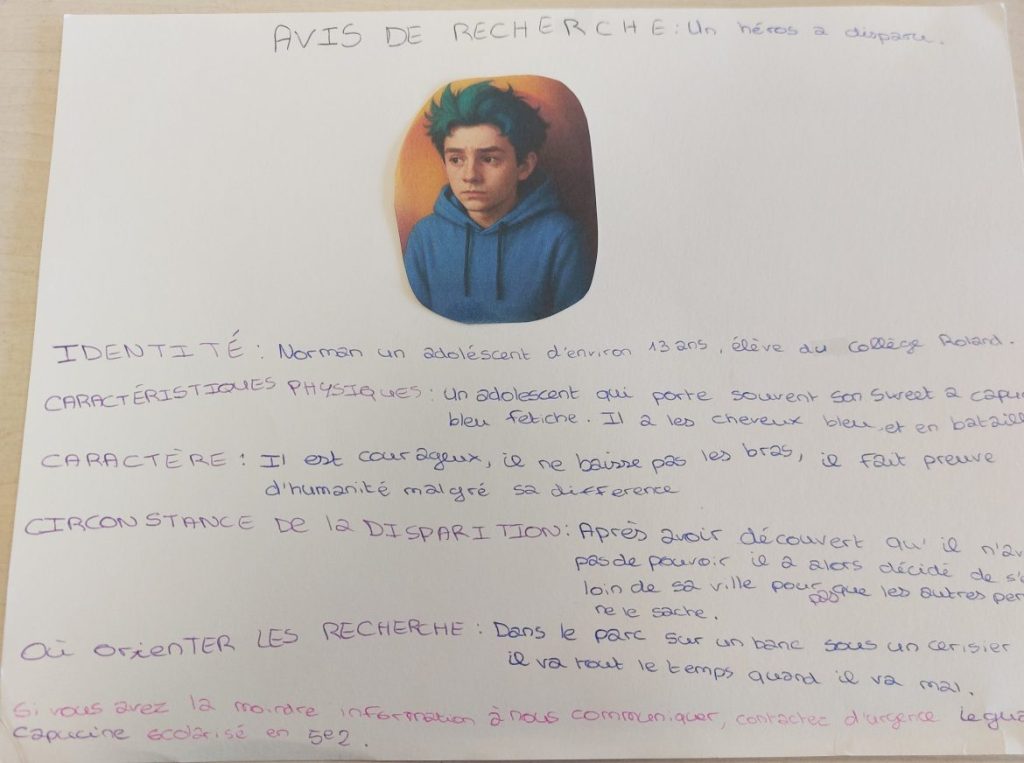 AVIS DE RECHERCHE : Un héros a disparu.
IDENTITÉ : Norman un adoléscent d'environ 13 ans, élève du collège Roland.
CARACTÉRISTIQUES PHYSIQUES : un adolescent qui porte souvent son sweet a
bleu fetiche. Il a les cheveux bleu et en
CARACTÈRE : Il est courageux, il ne baisse pas les bras, il fait preuve
d'humanité malgré sa difference
CIRCONSTANCE DE la DISPARITION : Après avoir découvert qu'il
pas de pouvoir il a alors décidé de
loin de sa ville pour pas que les autres
ne le sache.
Où orienTER LES RECHERCHE : Dans le parc sur un banc sous un cerisier
il va tout le temps quand il va mal.
Si vous avez la moindre information à nous communiquer, contactez d'urgence
Capucine scolarisé en 5e2.